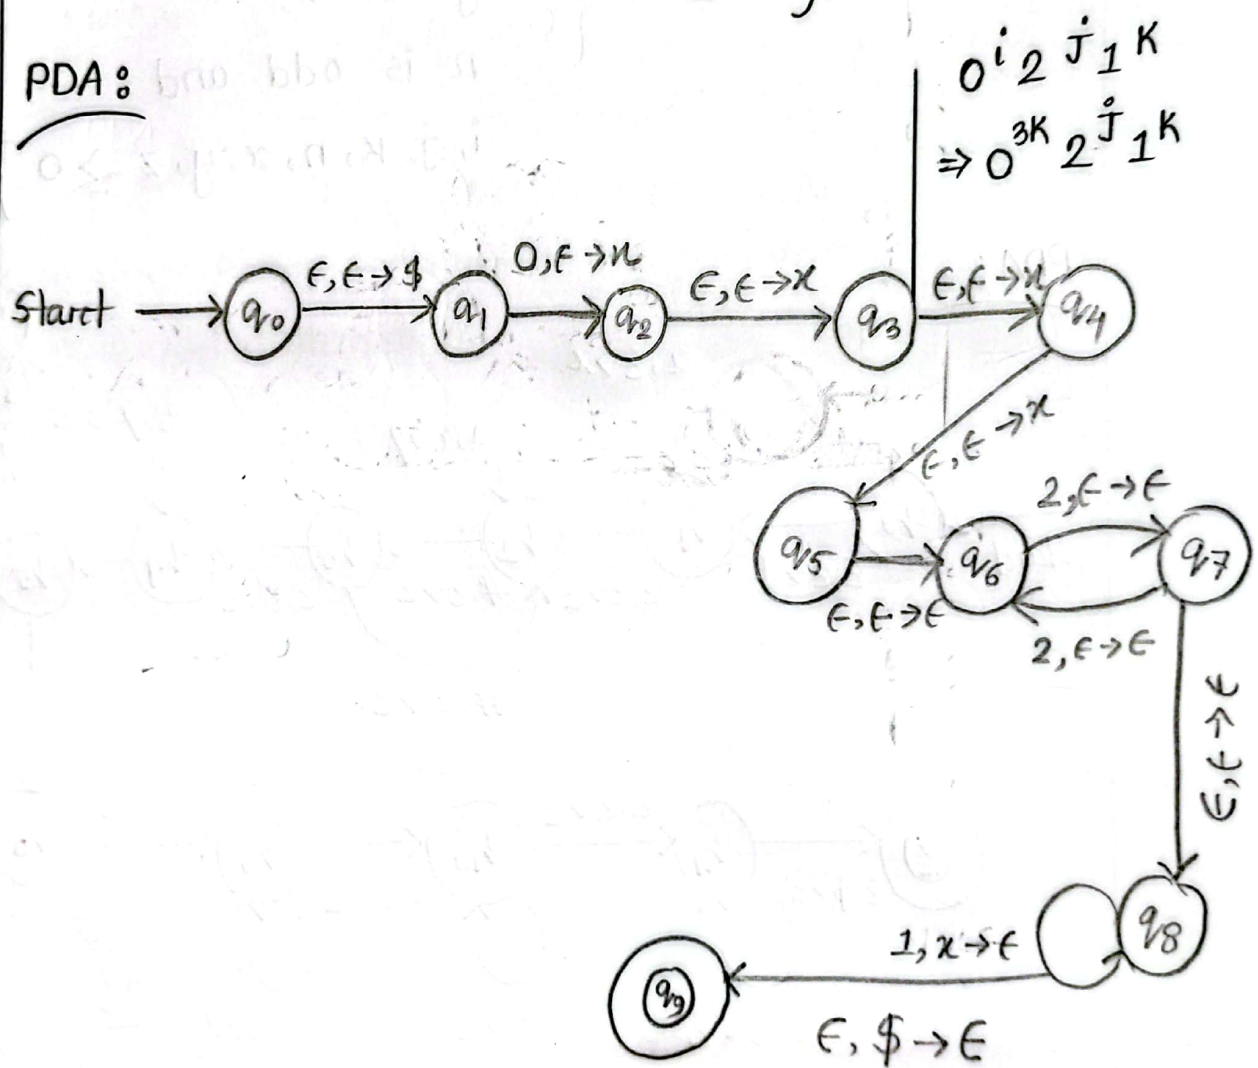 PDA:
0^i 2^j 1^K
⇒ 0^3K 2^j 1^K
Start
q0
ϵ, ϵ → $
q1
0, ϵ → x
q2
ϵ, ϵ → x
q3
ϵ, ϵ → x
q4
ϵ, ϵ → x
q5
ϵ, ϵ → ϵ
q6
2, ϵ → ϵ
q7
2, ϵ → ϵ
ϵ, ϵ → ϵ
q8
1, x → ϵ
q9
ϵ, $ → ϵ